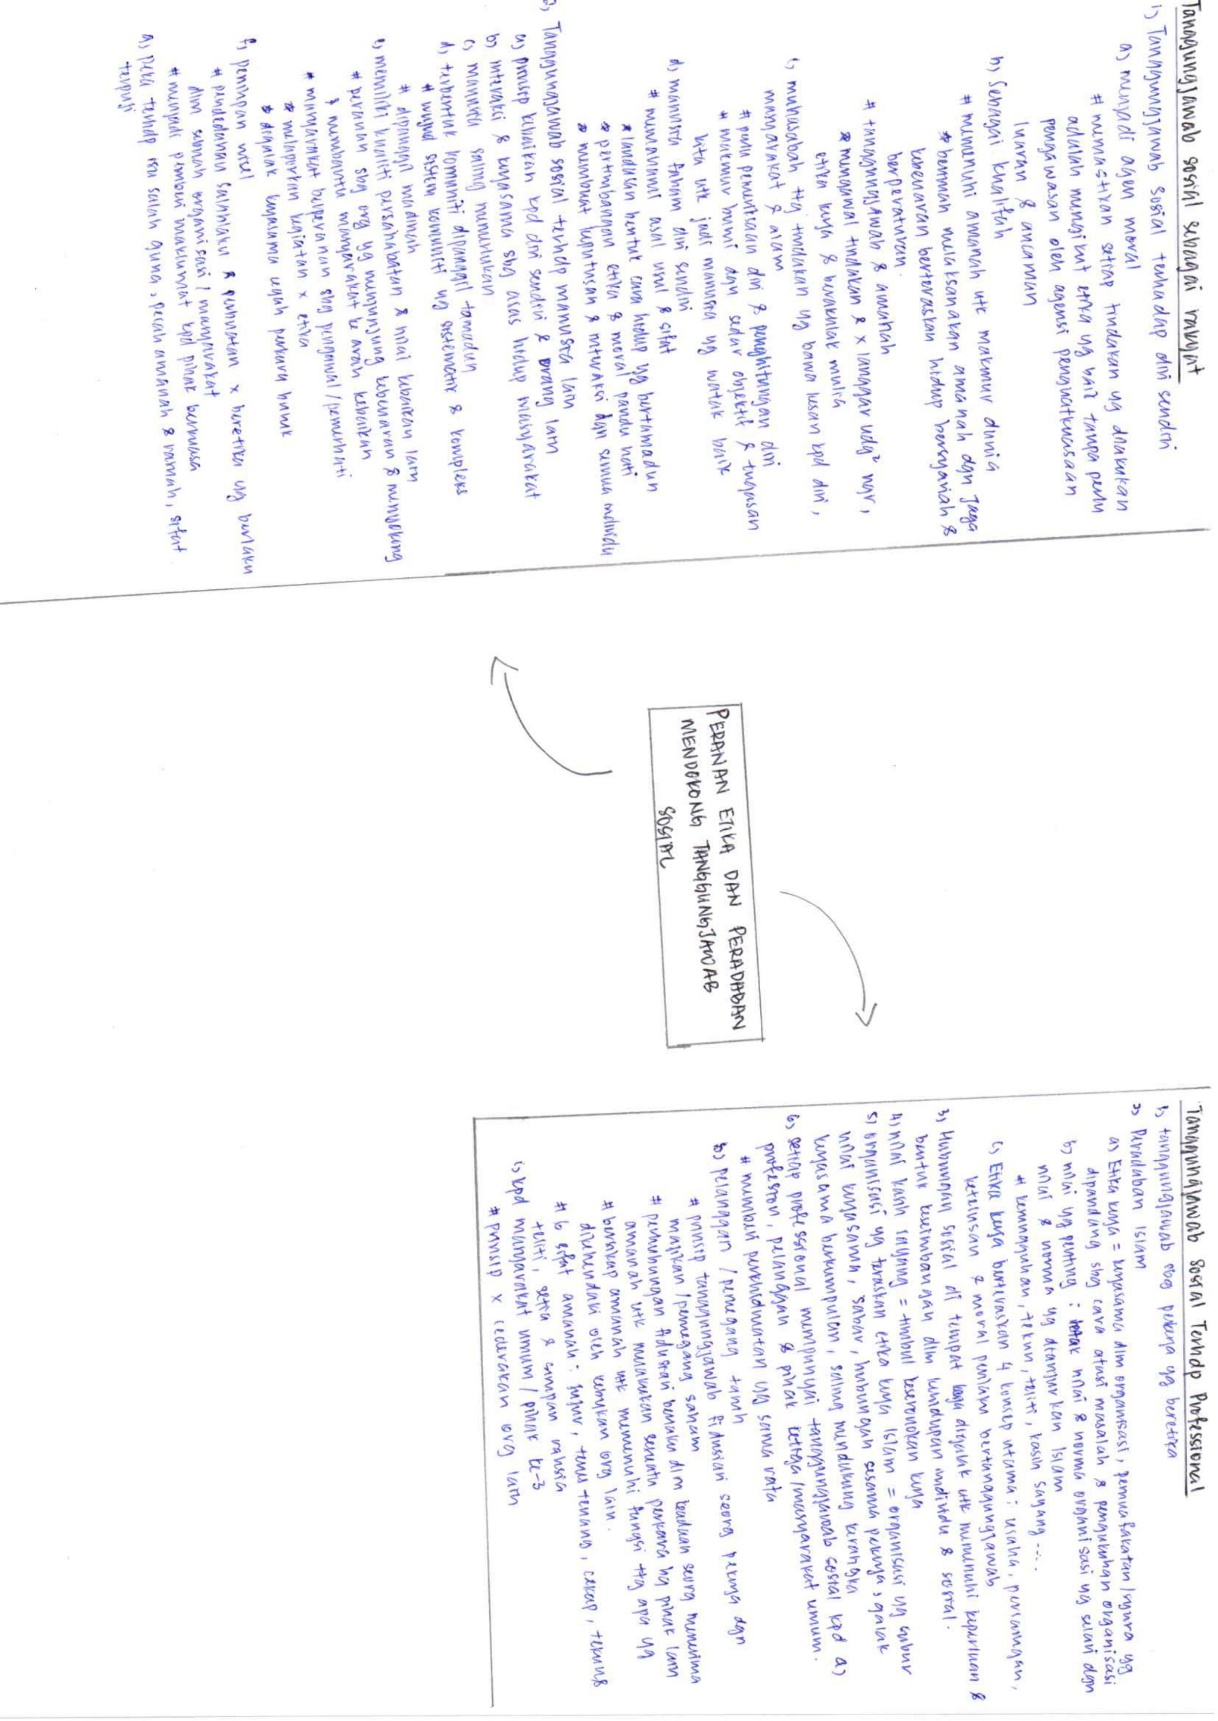 PERANAN ETIKA DAN PERADABAN
MENDOKONG TANGGUNGJAWAB
SOSIAL
Tanggungjawab sosial sebagai rakyat
1) Tanggungjawab sosial terhadap diri sendiri
a) menjadi agen moral
# memastikan setiap tindakan yg dilakukan
adalah mengikut etika yg baik tanpa perlu
pengawasan oleh agensi penguatkuasaan
luaran & ancaman
b) Sebagai khalifah
# memenuhi amanah utk makmur dunia
# beriman melaksanakan amanah dgn jaga
kebenaran berteraskan hidup bersyariah &
berperaturan.
# tanggungjawab & amanah
# mengawal tindakan & x langgar udg² ngr,
etika kerja & berakhlak mulia
c) muhasabah ttg tindakan yg bawa kesan kpd diri,
masyarakat & alam
# perlu pemeriksaan diri & penghitungan diri
# makmur bumi dgn sedar objektif & tugasan
kita utk jadi manusia yg watak baik
d) manusia faham diri sendiri
# memahami asal usul & sifat
# landasan bentuk cara hidup yg bertamadun
# pertimbangan etika & moral pandu hati
# membuat keputusan & interaksi dgn semua individu
2) Tanggungjawab sosial terhdp manusia lain
a) prinsip kebaikan kpd diri sendiri & orang lain
b) interaksi & kerjasama sbg asas hidup masyarakat
c) manusia saling memerlukan
d) terbentuk komuniti dipanggil tamadun
# wujud sistem komuniti yg sistematik & kompleks
# dipanggil madinah
e) memiliki kualiti persahabatan & nilai kebaikan lain
# peranan sbg org yg menjunjung kebenaran & menyokong
& membantu masyarakat ke arah kebaikan
# masyarakat berperanan sbg pengawal/pemerhati
# melaporkan kegiatan x etika
# digalak kerjasama cegah perkara buruk
f) peniupan wisel
# pendedahan salahlaku & perbuatan x beretika yg berlaku
dlm sebuah organisasi / masyarakat
# menjadi pemberi maklumat kpd pihak berkuasa
g) peka terhdp isu salah guna, pecah amanah & rasuah, sifat
terpuji
Tanggungjawab Sosial Terhdp Professional
1) tanggungjawab sbg pekerja yg beretika
2) Peradaban Islam
a) Etika kerja = kerjasama dlm organisasi, pemuafakatan/syura yg
dipandang sbg cara atasi masalah & pengukuhan organisasi
b) nilai yg penting : nilai & norma organisasi yg selari dgn
nilai & norma yg dianjurkan Islam
# kesungguhan, tekun, teliti, kasih sayang ....
c) Etika kerja berteraskan 4 konsep utama : usaha, persaingan,
ketelusan & moral perilaku bertanggungjawab
3) Hubungan sosial di tempat kerja digalak utk memenuhi keperluan &
bentuk keseimbangan dlm kehidupan individu & sosial.
4) nilai kasih sayang = timbul keseronokan kerja
5) organisasi yg teraskan etika kerja Islam = organisasi yg subur
nilai kerjasama, sabar, hubungan sesama pekerja, galak
kerjasama berkumpulan, saling mendukung kerangka
6) setiap professional mempunyai tanggungjawab sosial kpd a)
profesion, pelanggan & pihak ketiga/masyarakat umum.
# memberi perkhidmatan yg sama rata
b) pelanggan / pemegang taruh
# prinsip tanggungjawab fidusiari seorg pekerja dgn
majikan /pemegang saham
# perhubungan fidusiari bermula dlm keadaan seorg menerima
amanah utk melakukan sesuatu perkara bg pihak lain
# bersikap amanah utk memenuhi fungsi ttg apa yg
dikehendaki oleh kebanyakan org lain.
# 6 sifat amanah : jujur, terus terang, cekap, tekun &
teliti, setia & simpan rahsia
c) kpd masyarakat umum / pihak ke-3
# prinsip x cederakan org lain